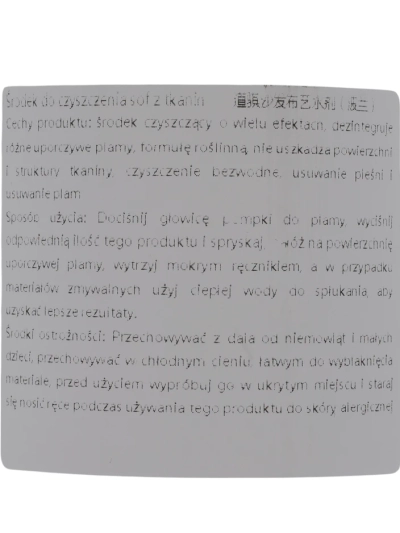 Środek do czyszczenia sof z tkanin 沙发布艺水剂（波兰）
Cechy produktu: środek czyszczący o wielu efektach, dezintegruje
różne uporczywe plamy, formułę roślinną, nie uszkadza powierzchni
i struktury tkaniny, czyszczenie bezwodne, usuwanie pleśni i
usuwanie plam
Sposób użycia: Dociśnij głowicę pompki do plamy, wyciśnij
odpowiednią ilość tego produktu i spryskaj, nałóż na powierzchnię
uporczywej plamy, wytrzyj mokrym ręcznikiem, a w przypadku
materiałów zmywalnych użyj ciepłej wody do spłukania, aby
uzyskać lepsze rezultaty.
Środki ostrożności: Przechowywać z dala od niemowląt i małych
dzieci, przechowywać w chłodnym cieniu, łatwym do wyblaknięcia
materiale, przed użyciem wypróbuj go w ukrytym miejscu i staraj
się nosić ręce podczas używania tego produktu do skóry alergicznej